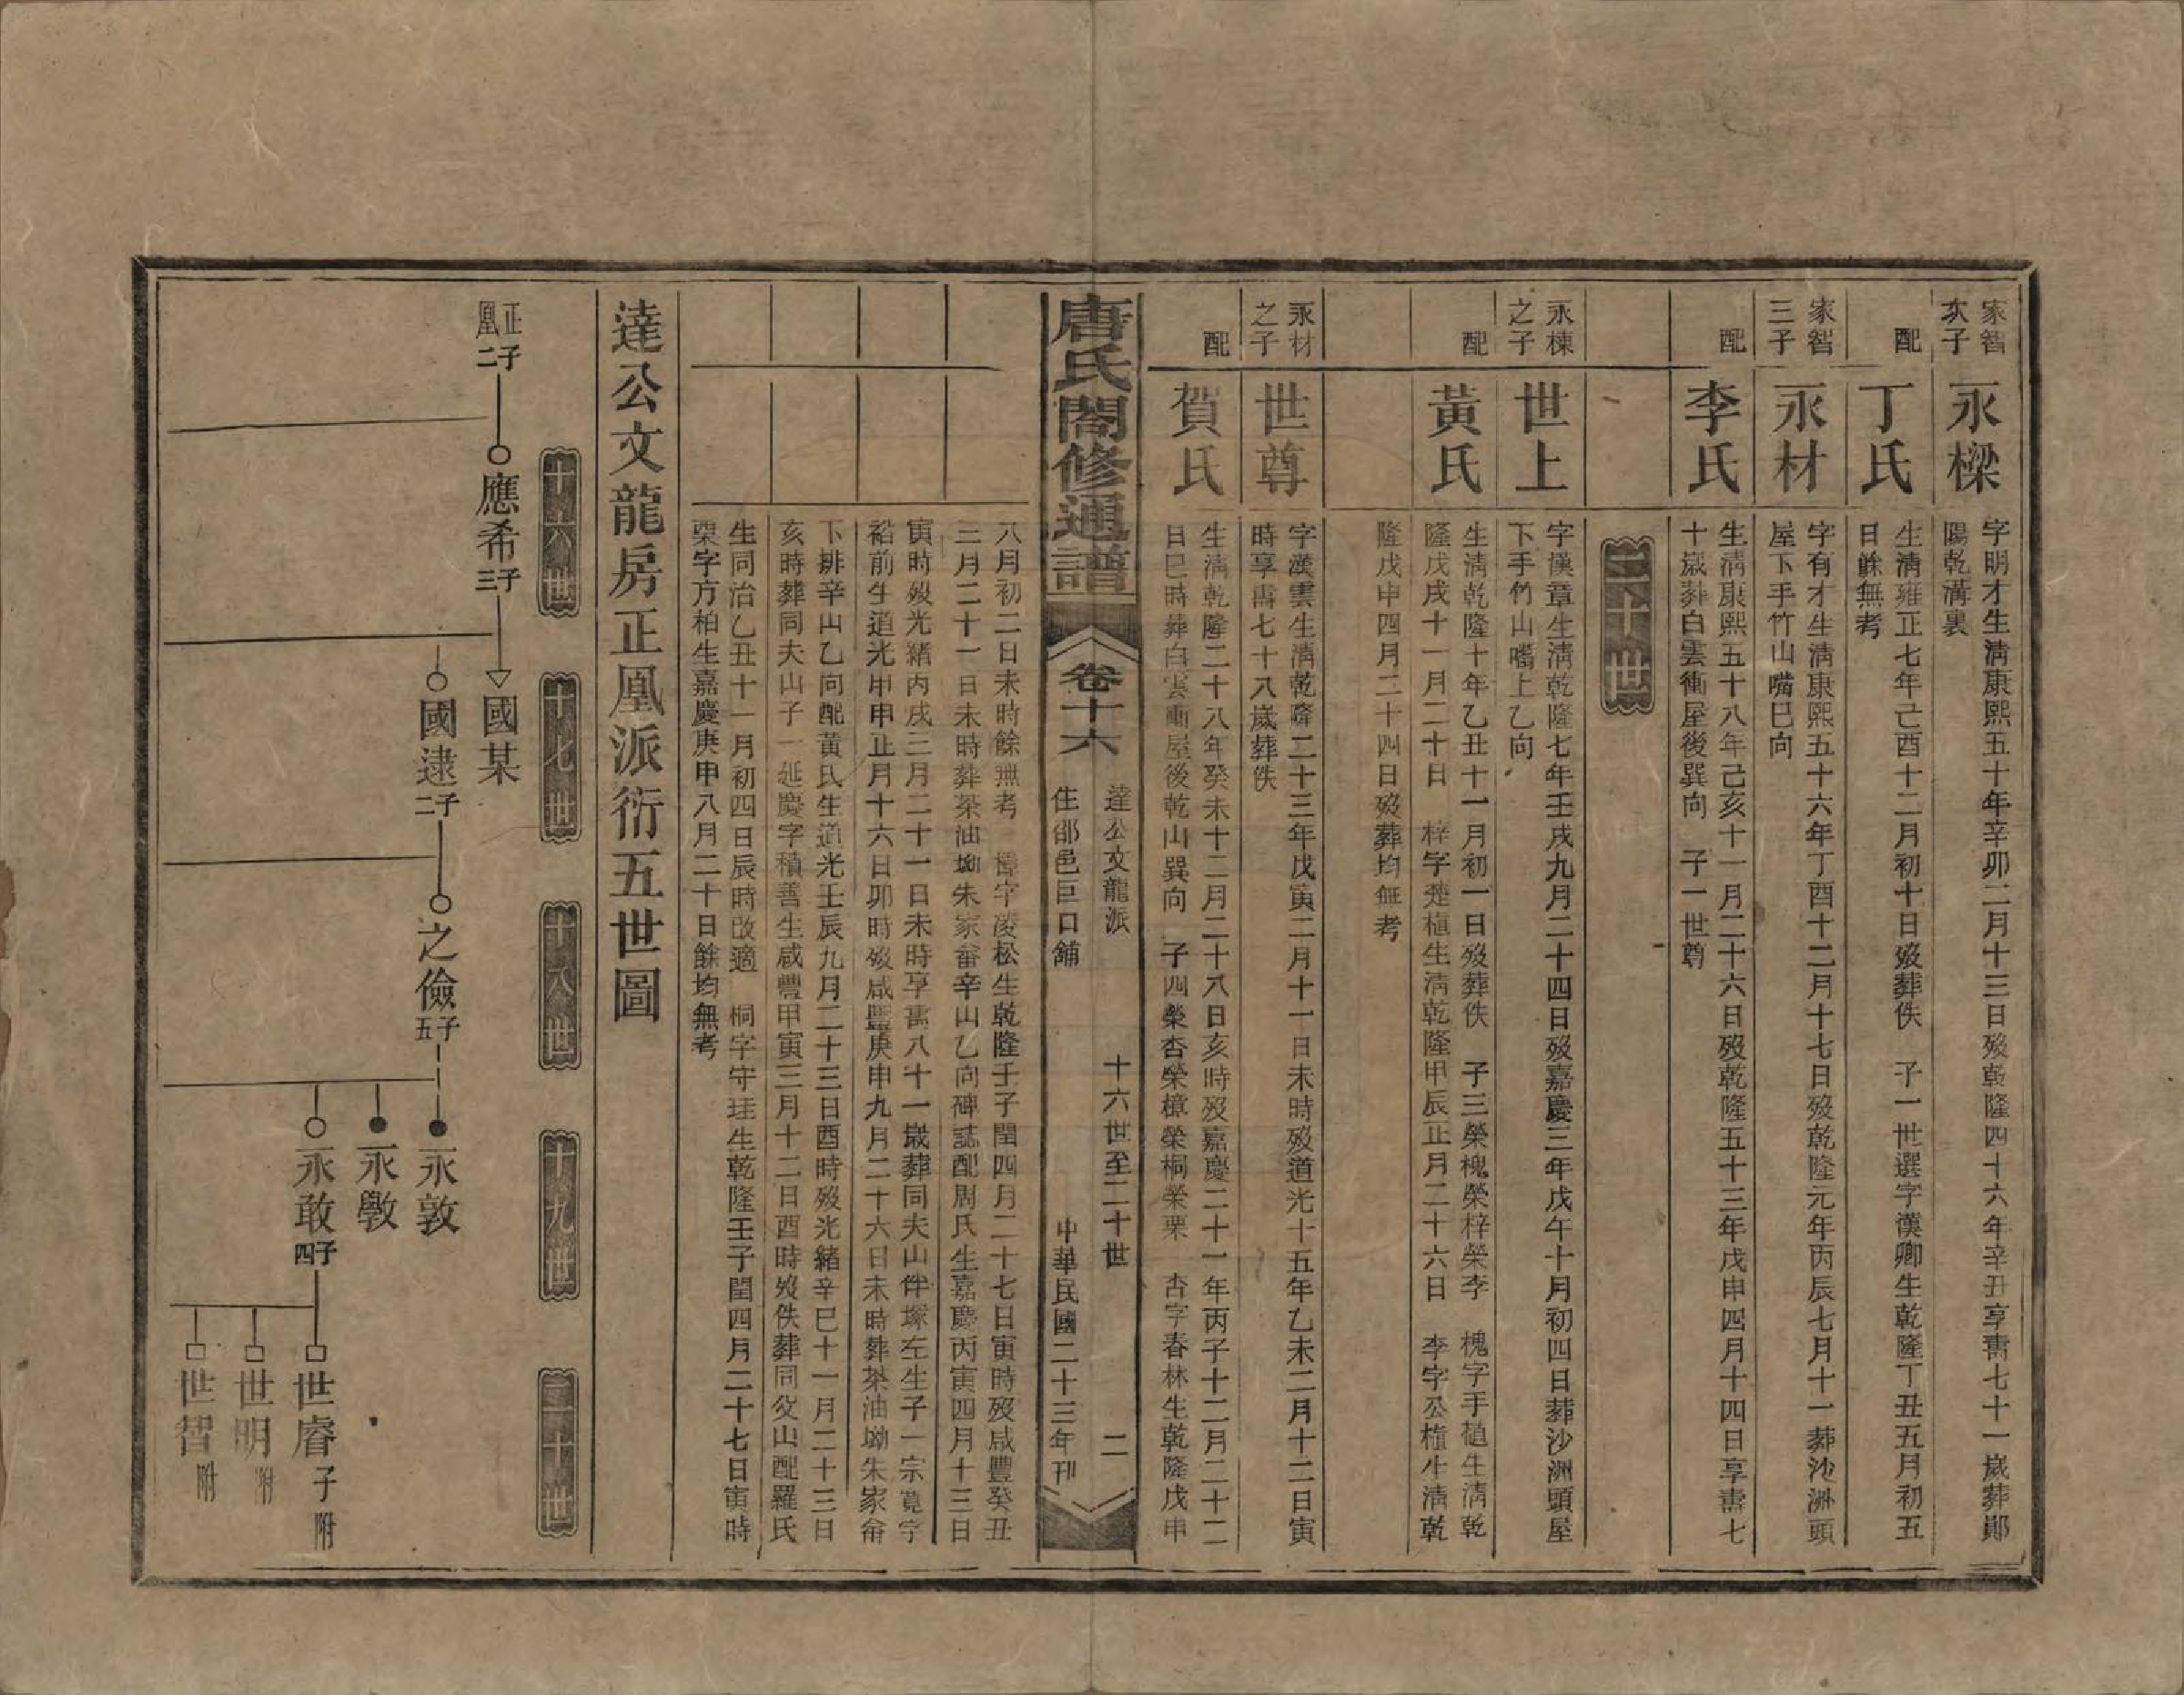 家智
次子
永樑
字明才生清康熙五十年辛卯二月十三日歿乾隆四十六年辛丑享壽七十一歲葬鄖
陽乾溝裏
配
丁氏
生清雍正七年己酉十二月初十日歿葬佚 子一世選字漢卿生乾隆丁丑五月初五
日餘無考
家智
三子
永材
字有才生清康熙五十六年丁酉十二月十七日歿乾隆元年丙辰七月十一葬沙洲頭
屋下手竹山嘴巳向
配
李氏
生清康熙五十八年己亥十一月二十六日歿乾隆五十三年戊申四月十四日享壽七
十歲葬白雲衝屋後巽向 子一世尊
二十世
永棟
之子
世上
字漢章生清乾隆七年壬戌九月二十四日歿嘉慶三年戊午十月初四日葬沙洲頭屋
下手竹山嘴上乙向
配
黃氏
生清乾隆十年乙丑十一月初一日歿葬佚 子三榮槐榮梓榮李 槐字手植生清乾
隆戊戌十一月二十日 梓字楚植生清乾隆甲辰正月二十六日 李字公植生清乾
隆戊申四月二十四日歿葬均無考
永材
之子
世尊
字漢雲生清乾隆二十三年戊寅二月十一日未時歿道光十五年乙未二月十二日寅
時享壽七十八歲葬佚
配
賀氏
生清乾隆二十八年癸未十二月二十八日亥時歿嘉慶二十一年丙子十二月二十二
日巳時葬白雲衝屋後乾山巽向 子四榮杏榮樟榮桐榮栗 杏字春林生乾隆戊申
唐氏閤修通譜
卷十六
達公文龍派 十六世至二十世 二
住邵邑巨口舖 中華民國二十三年刊
八月初二日未時餘無考 樟字凌松生乾隆壬子閏四月二十七日寅時歿咸豐癸丑
三月二十一日未時葬茶油坳朱家畲辛山乙向碑誌配周氏生嘉慶丙寅四月十三日
寅時歿光緒丙戌三月二十一日未時享壽八十一歲葬同夫山伴塚左生子一宗寬字
裕前生道光甲申正月十六日卯時歿咸豐庚申九月二十六日未時葬茶油坳朱家畲
下排辛山乙向配黃氏生道光壬辰九月二十三日酉時歿光緒辛巳十一月二十三日
亥時葬同夫山子一延慶字積善生咸豐甲寅三月十二日酉時歿佚葬同父山配羅氏
生同治乙丑十一月初四日辰時改適 桐字守珪生乾隆壬子閏四月二十七日寅時
栗字方柏生嘉慶庚申八月二十日餘均無考
達公文龍房正凰派衍五世圖
十六世
十七世
十八世
十九世
二十世
正凰二子
應希三子
國某
國逮二子
之儉五子
永敦
永斆
永敢四子
世睿子附
世明附
世智附